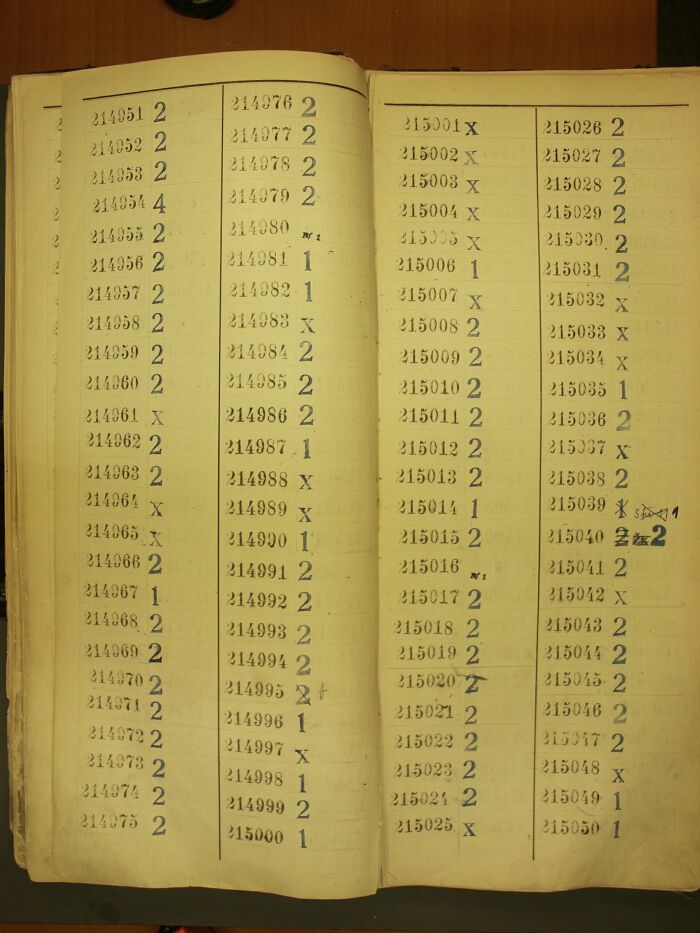 214951 2
214952 2
214953 2
214954 4
214955 2
214956 2
214957 2
214958 2
214959 2
214960 2
214961 x
214962 2
214963 2
214964 x
214965 x
214966 2
214967 1
214968 2
214969 2
214970 2
214971 2
214972 2
214973 2
214974 2
214975 2
214976 2
214977 2
214978 2
214979 2
214980
214981 1
214982 1
214983 x
214984 2
214985 2
214986 2
214987 1
214988 x
214989 x
214990 1
214991 2
214992 2
214993 2
214994 2
214995 2
214996 1
214997 x
214998 1
214999 2
215000 1
215001 x
215002 x
215003 x
215004 x
215005 x
215006 1
215007 x
215008 2
215009 2
215010 2
215011 2
215012 2
215013 2
215014 1
215015 2
215016
215017 2
215018 2
215019 2
215020 2
215021 2
215022 2
215023 2
215024 2
215025 x
215026 2
215027 2
215028 2
215029 2
215030 2
215031 2
215032 x
215033 x
215034 x
215035 1
215036 2
215037 x
215038 2
215039 1 1
215040 2 2
215041 2
215042 x
215043 2
215044 2
215045 2
215046 2
215047 2
215048 x
215049 1
215050 1